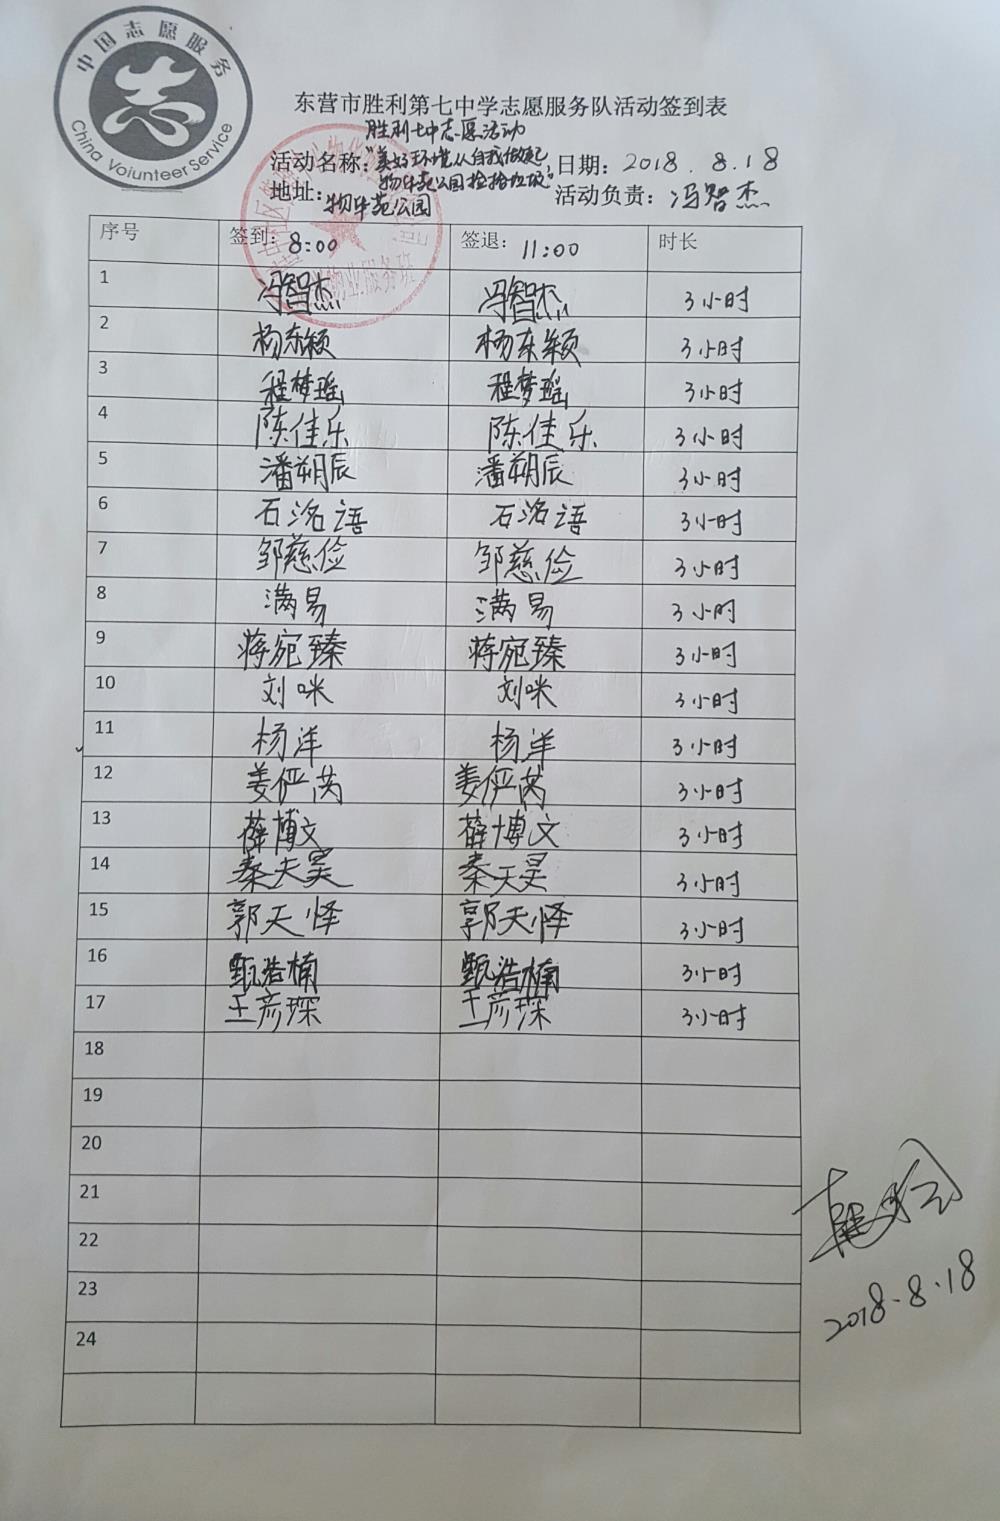 中国志愿服务
China Volunteer Service
东营市胜利第七中学志愿服务队活动签到表
胜利七中志愿活动
活动名称："美好环境从自我做起， 日期：2018.8.18
物华苑公园捡拾垃圾"
地址：物华苑公园 活动负责：冯智杰
序号 签到：8:00 签退：11:00 时长
1 冯智杰 冯智杰 3小时
2 杨东颖 杨东颖 3小时
3 程梦瑶 程梦瑶 3小时
4 陈佳乐 陈佳乐 3小时
5 潘朔辰 潘朔辰 3小时
6 石洺语 石洺语 3小时
7 邹慈俭 邹慈俭 3小时
8 满易 满易 3小时
9 蒋宛臻 蒋宛臻 3小时
10 刘咪 刘咪 3小时
11 杨洋 杨洋 3小时
12 姜俨芮 姜俨芮 3小时
13 薛博文 薛博文 3小时
14 秦天昊 秦天昊 3小时
15 郭天怿 郭天怿 3小时
16 甄浩楠 甄浩楠 3小时
17 王彦琛 王彦琛 3小时
18
19
20
21
22
23
24
2018.8.18